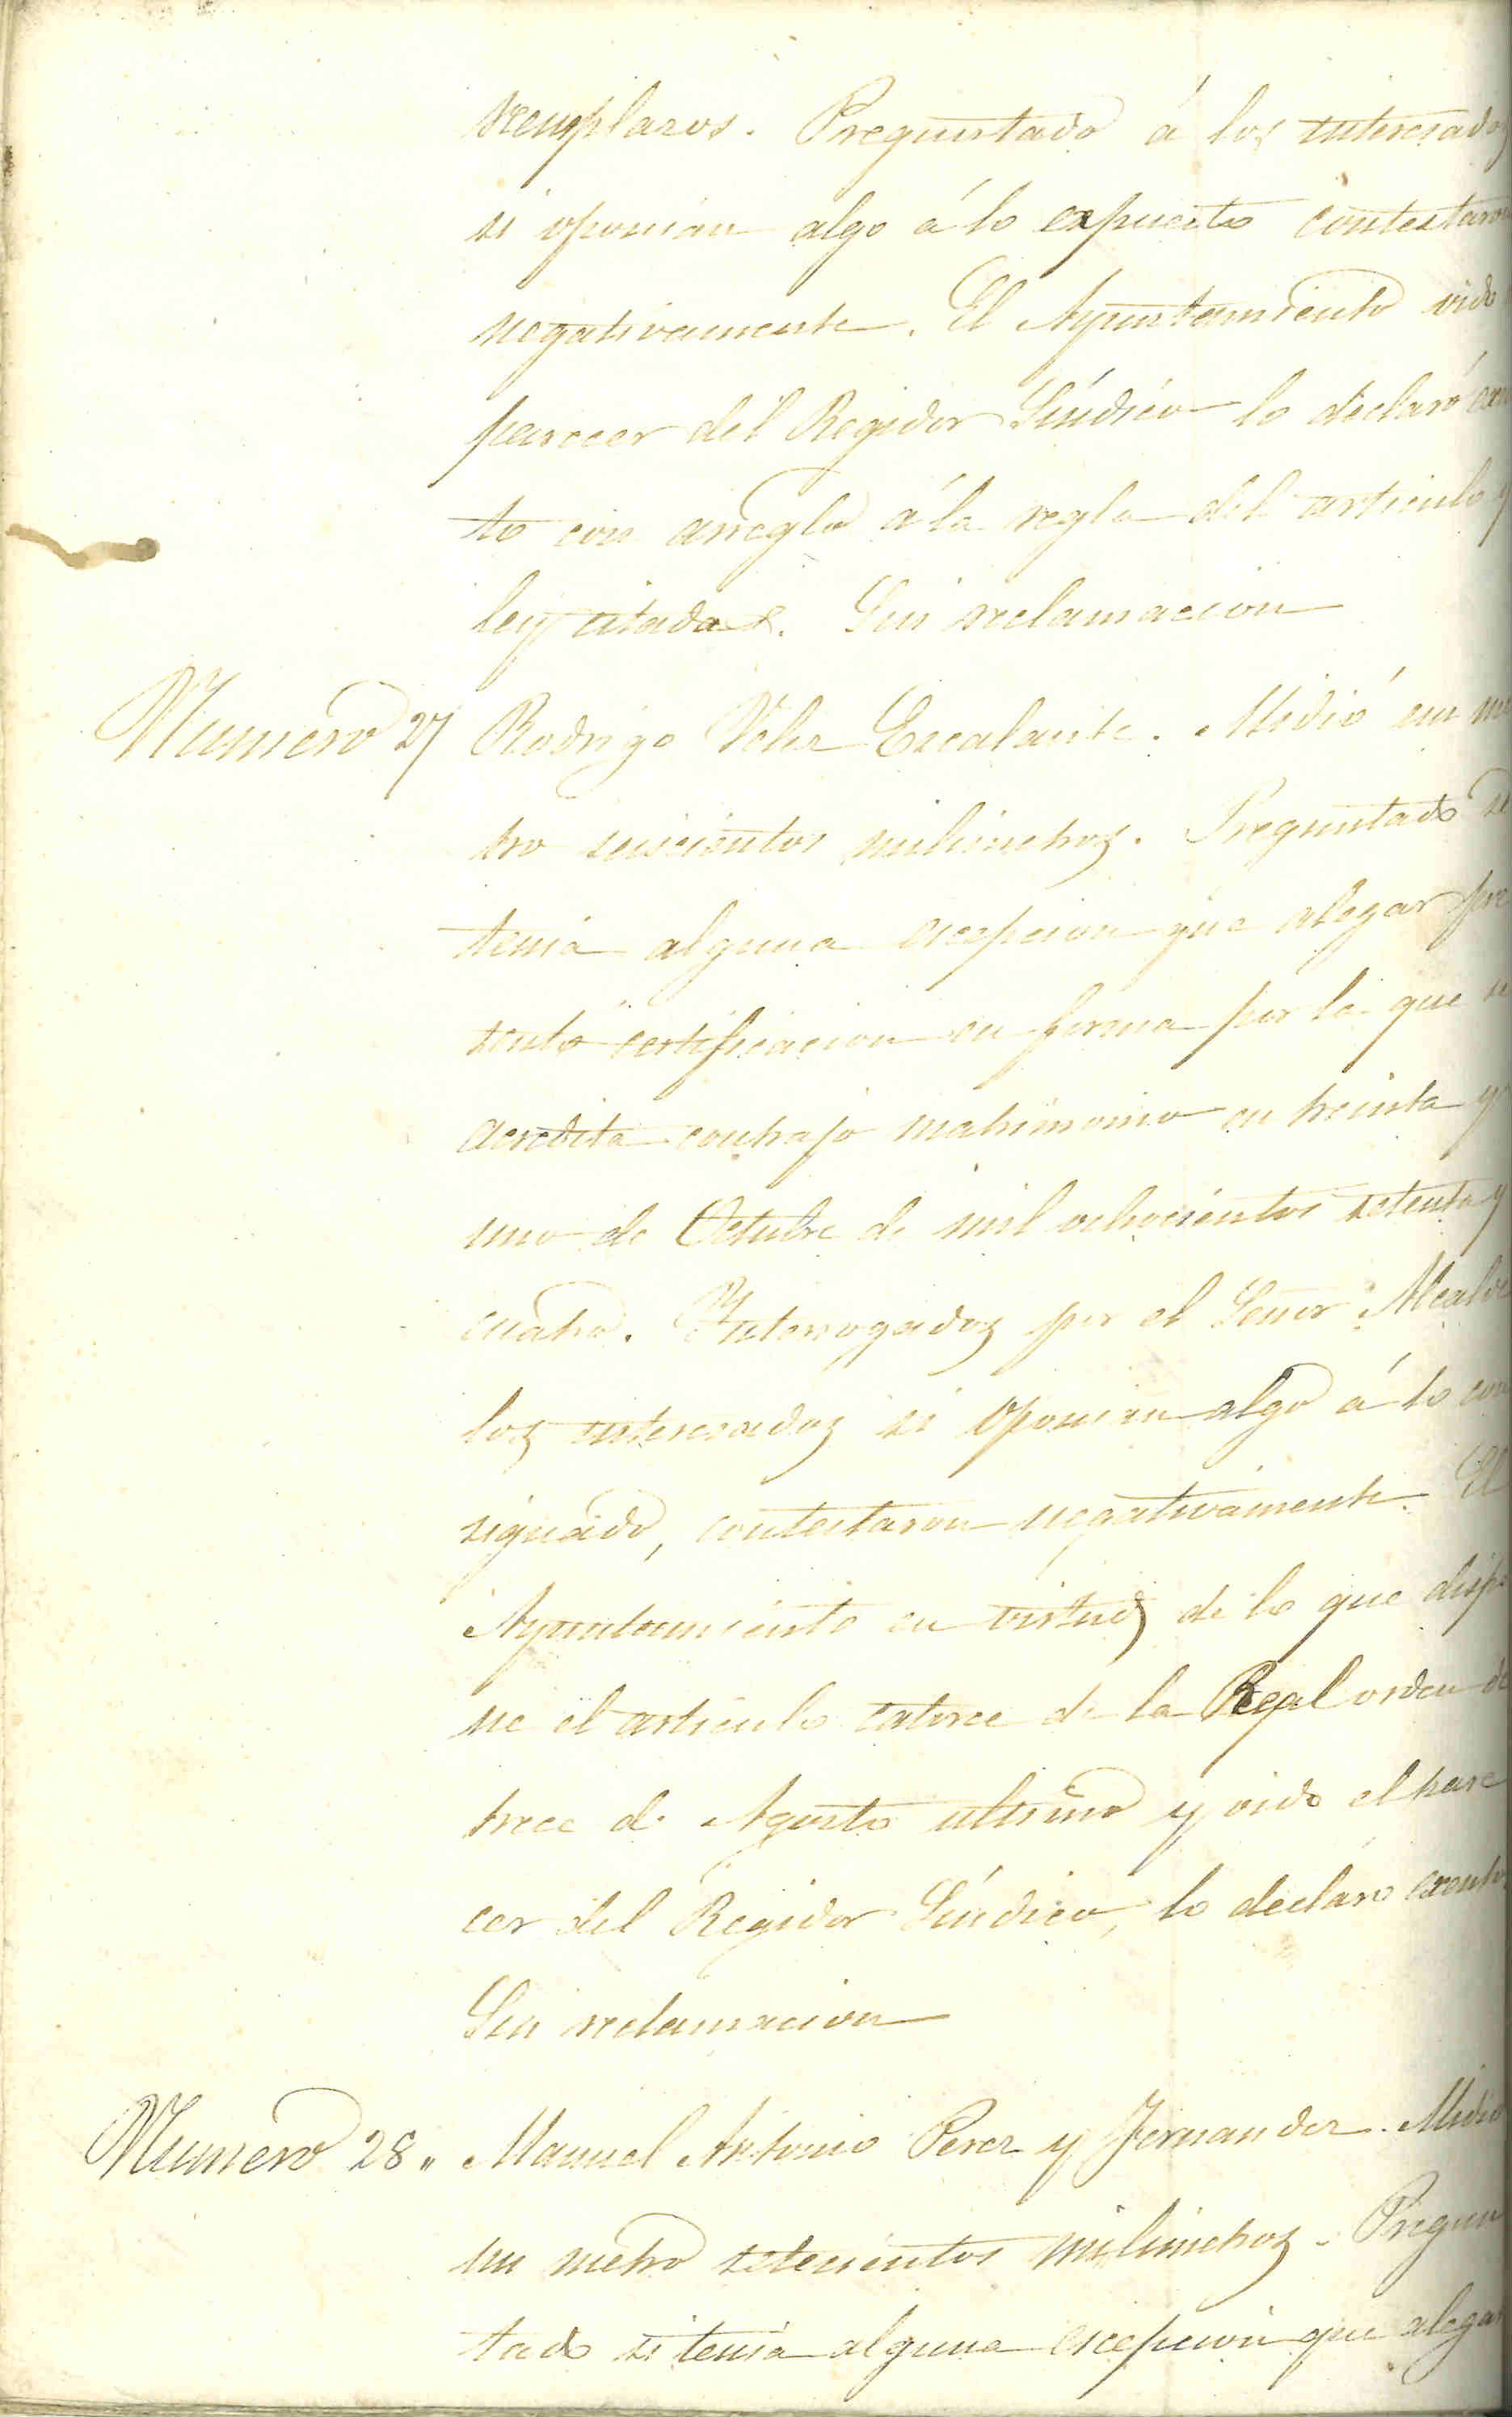 remplazos. Preguntado á los interesados
si oponian algo á lo expuesto contestaron
negativamente. El Ayuntamiento oido
parecer del Regidor Síndico lo declaró exen
to con arreglo á la regla del articulo y
ley citados. Sin reclamacion
Numero 27 Rodrigo Velez Escalante. Midió un me
tro seiscientos milimetros. Preguntado si
tenia alguna escepcion que alegar pre
sentó certificacion en forma por la que se
acredita contrajo matrimonio en treinta y
uno de Octubre de mil ochocientos setenta y
cuatro. Interrogados por el Señor Alcalde
los interesados si oponian algo á lo con
signado, contestaron negativamente. El
Ayuntamiento en virtud de lo que dispo
ne el articulo catorce de la Real orden de
trece de Agosto ultimo y oido el pare
cer del Regidor Síndico, lo declaró exento
Sin reclamacion
Numero 28 " Manuel Antonio Perez y Fernandez. Midió
un metro setecientos milimetros. Pregun
tado si tenia alguna escepcion que alegar